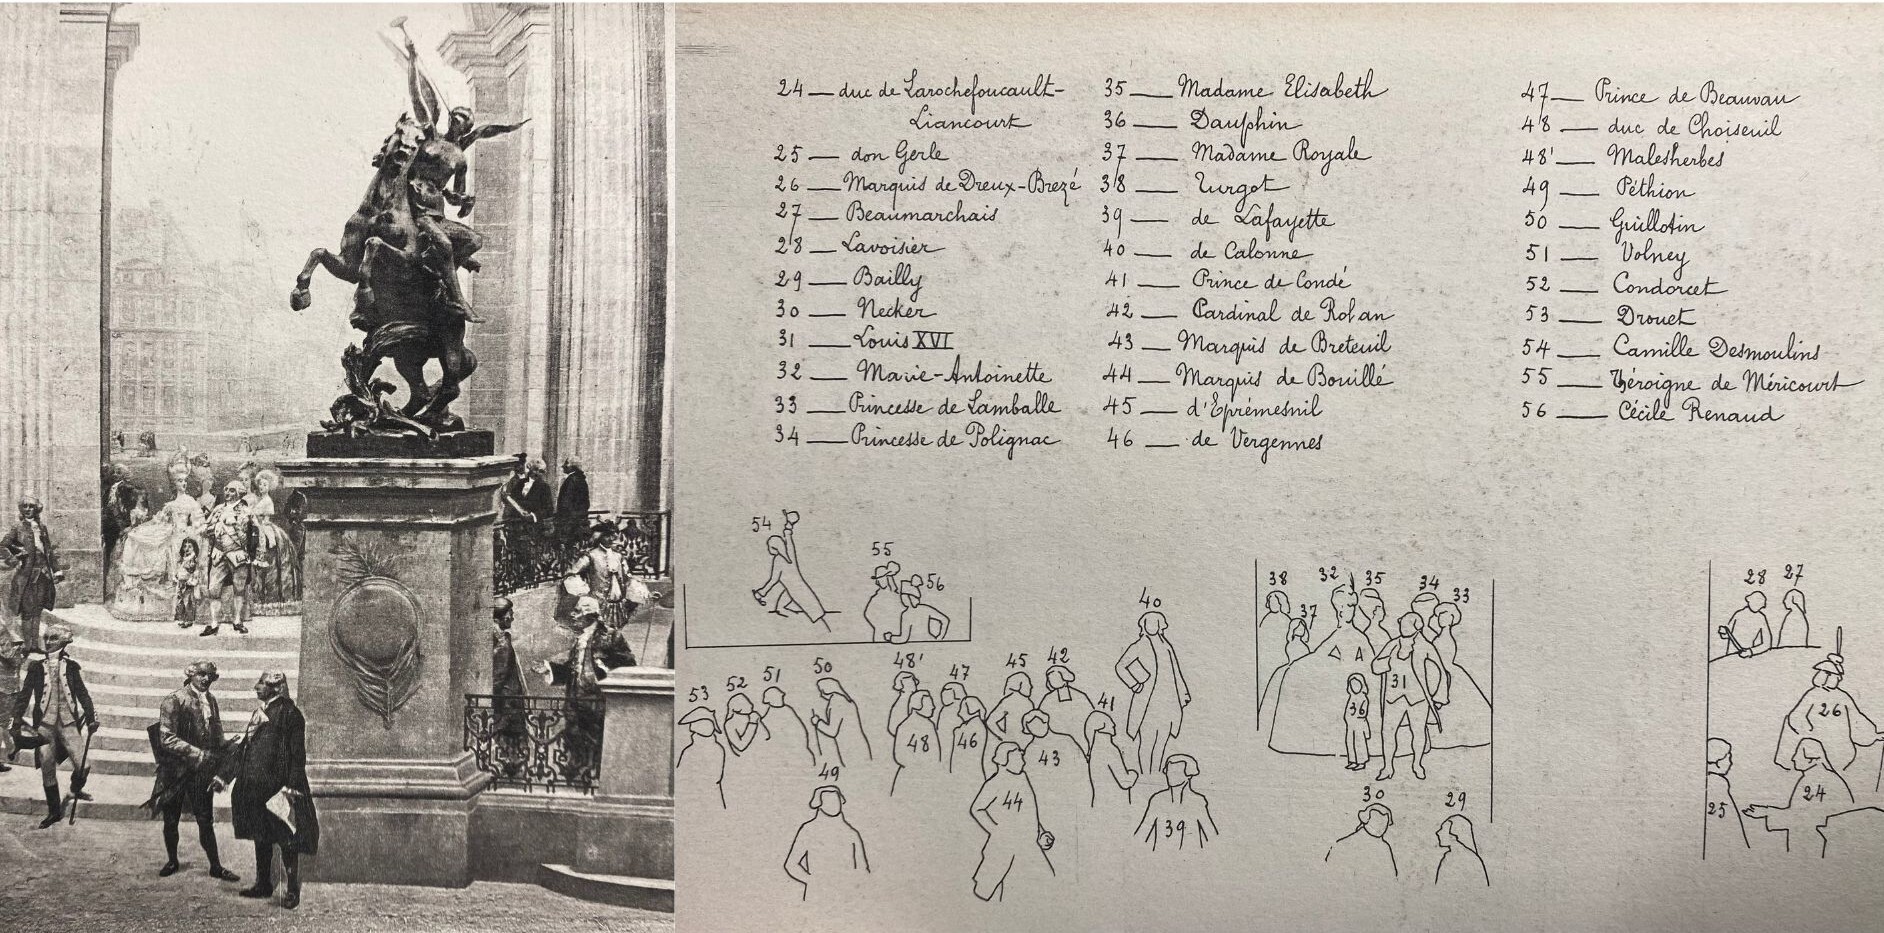 24 — duc de Larochefoucault-
Liancourt
25 — don Gerle
26 — Marquis de Dreux-Brezé
27 — Beaumarchais
28 — Lavoisier
29 — Bailly
30 — Necker
31 — Louis XVI
32 — Marie-Antoinette
33 — Princesse de Lamballe
34 — Princesse de Polignac
35 — Madame Elisabeth
36 — Dauphin
37 — Madame Royale
38 — Turgot
39 — de Lafayette
40 — de Calonne
41 — Prince de Condé
42 — Cardinal de Rohan
43 — Marquis de Breteuil
44 — Marquis de Bouillé
45 — d'Eprémesnil
46 — de Vergennes
47 — Prince de Beauvau
48 — duc de Choiseuil
48' — Malesherbes
49 — Péthion
50 — Guillotin
51 — Volney
52 — Condorcet
53 — Drouet
54 — Camille Desmoulins
55 — Théroigne de Méricourt
56 — Cécile Renaud
54
55
56
53
52
51
50
49
48'
48
47
46
45
42
44
43
41
40
39
38
37
32
35
34
33
36
31
30
29
28
27
26
25
24